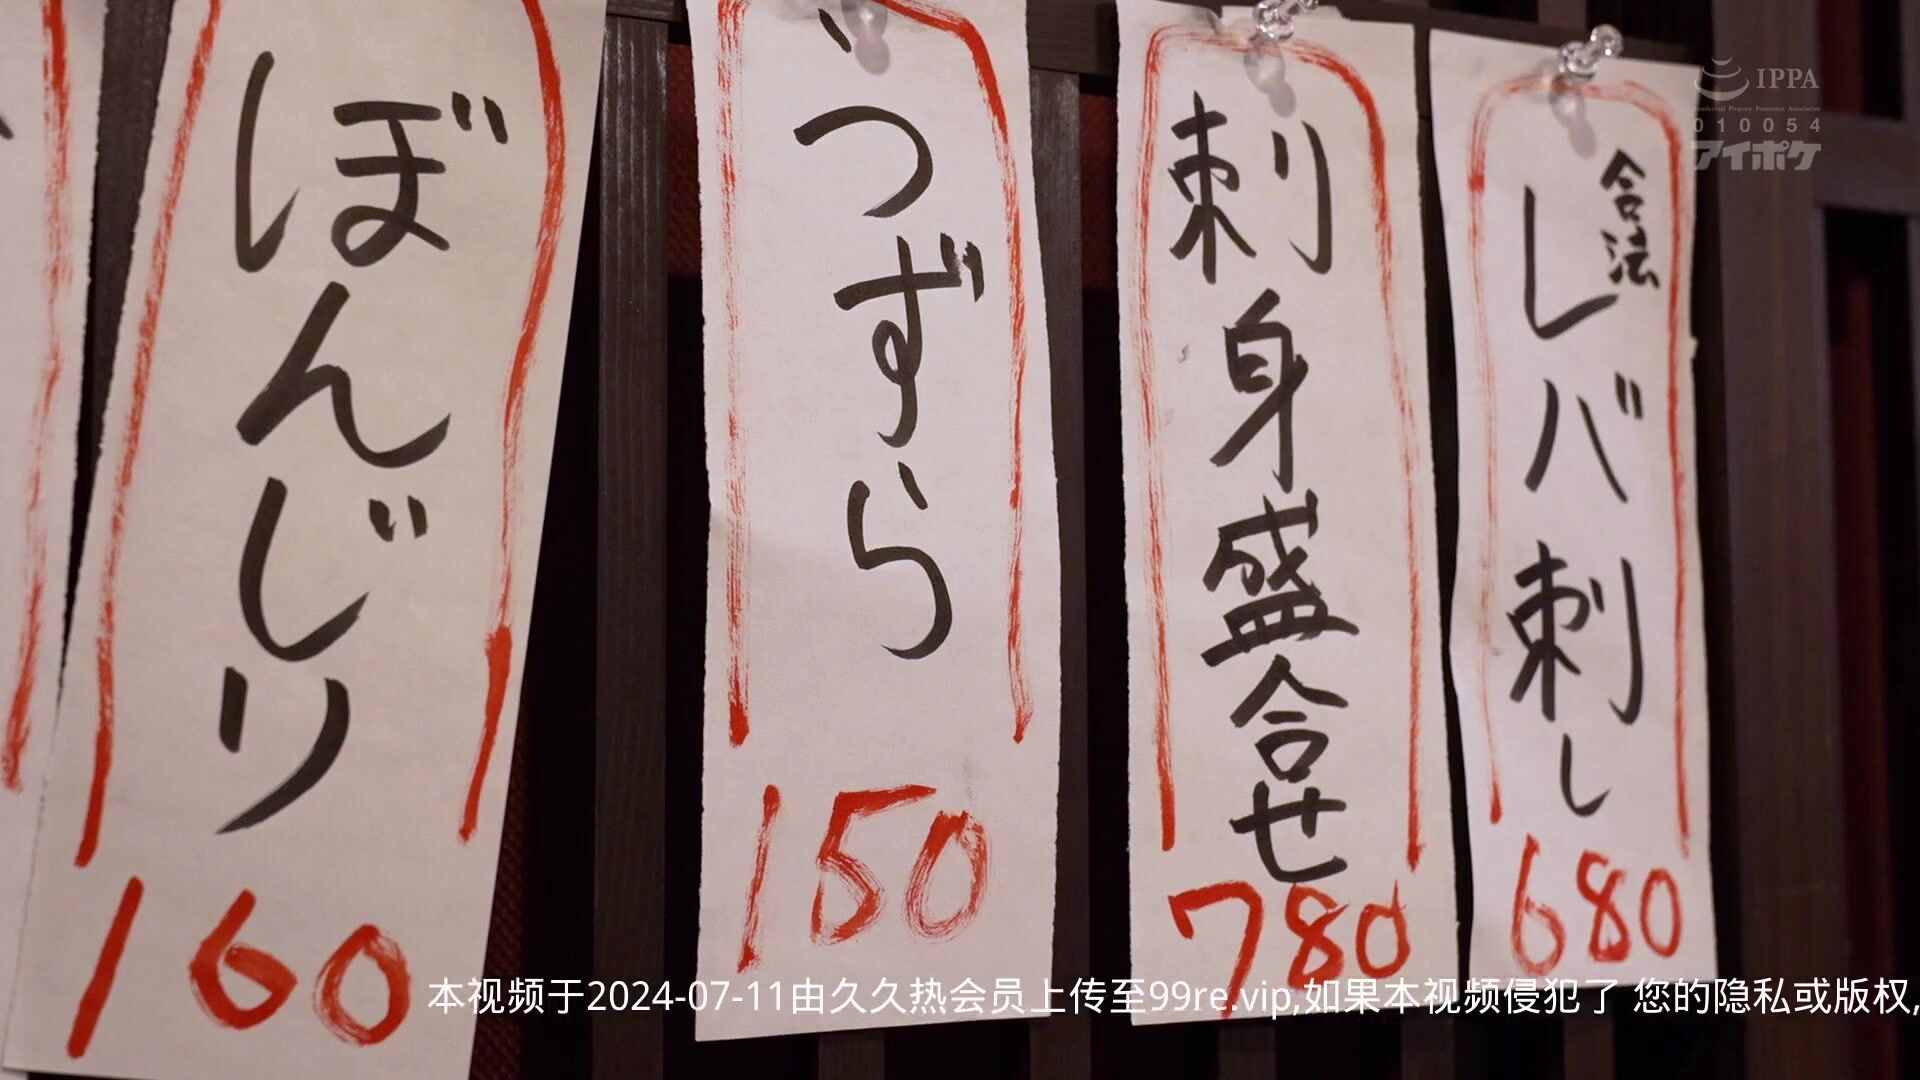 ぼんじり
160
うずら
150
刺身盛合せ
780
合法
レバ刺し
680
IPPA
Intellectual Property Promotion Association
010054
アイポケ
本视频于2024-07-11由久久热会员上传至99re.vip,如果本视频侵犯了 您的隐私或版权,